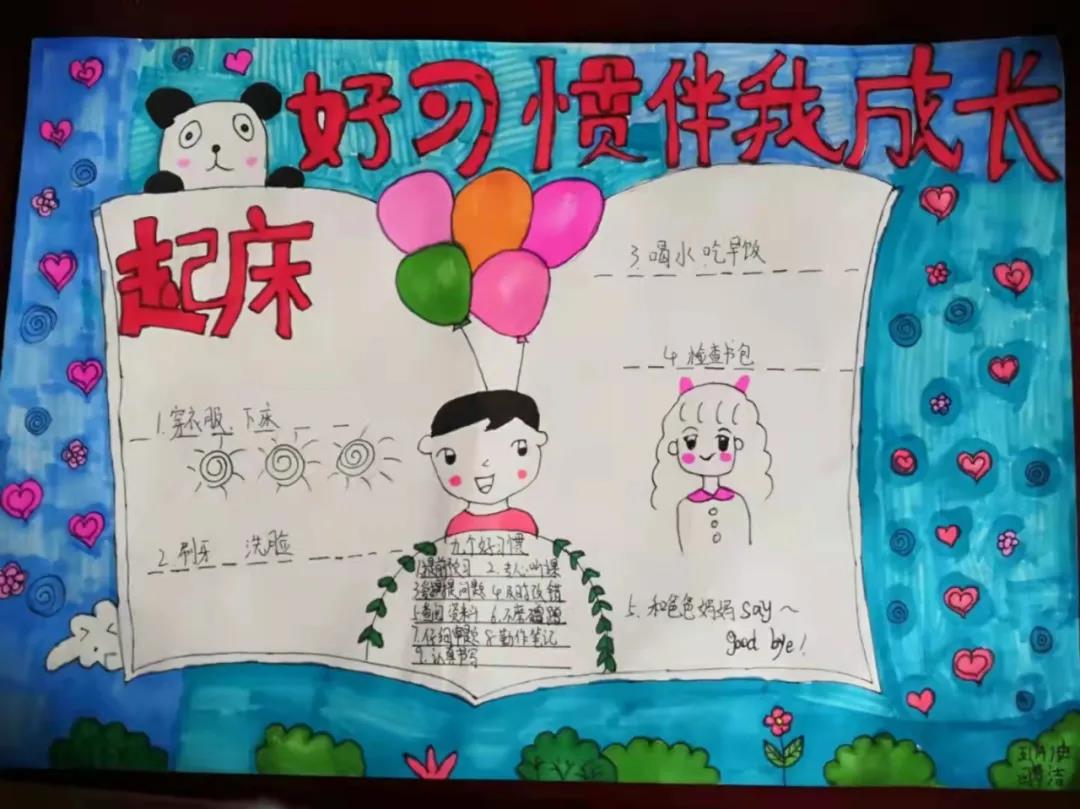 好习惯伴我成长
起床
1.穿衣服、下床
2.刷牙 洗脸
3.喝水 吃早饭
4.检查书包
5.和爸爸妈妈say~
good bye!
九个好习惯
1.提前预习 2.专心听课
3.提问题 4.及时改错
5.查阅资料 6.不磨蹭
7.仔细审题 8.勤作笔记
9.认真书写